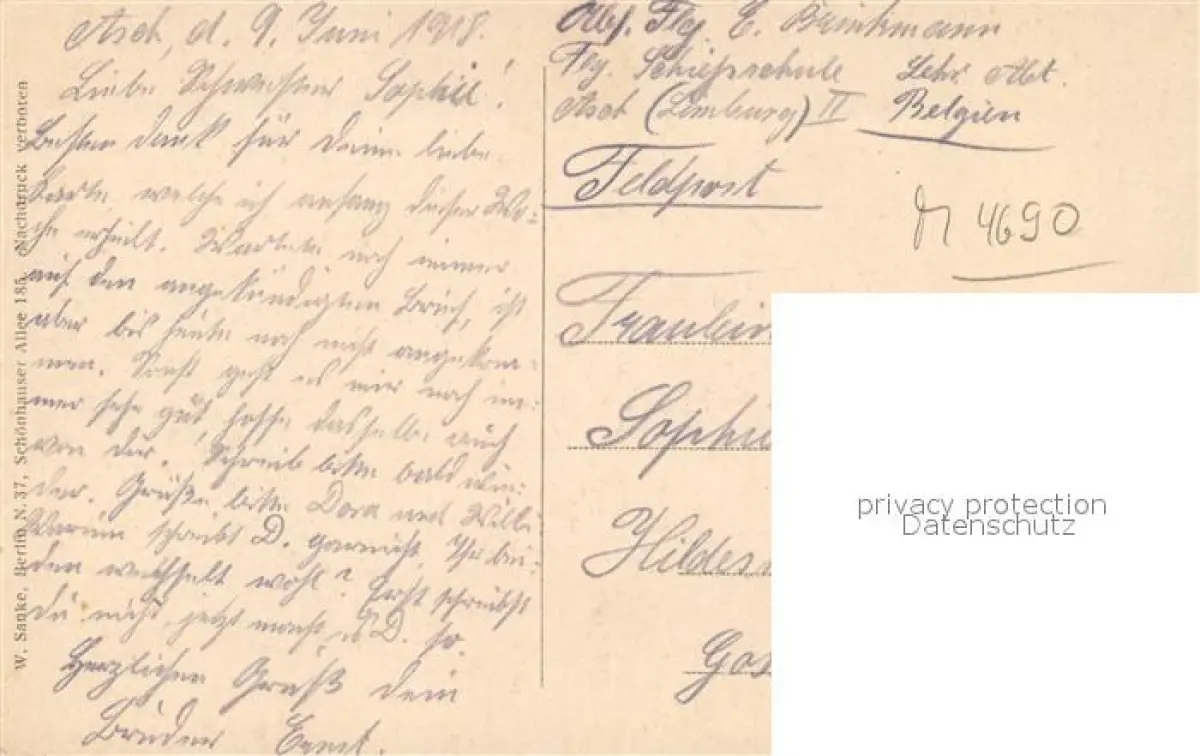 Asch, d. 9. Juni 1918.
Liebe Schwester Sophie!
Besten Dank für Deine liebe
Karte welche ich anfang dieser Wo=
che erhielt. Wartete noch immer
auf den angekündigten Brief, ist
aber bis heute noch nicht angekom=
men. Sonst geht es mir noch im=
mer sehr gut, hoffe dasselbe auch
von dir. Schreib bitte bald wie=
der. Grüße bitte Dora und Willi
Warum schreibt D. garnicht, Ihr bei=
den wechselt wohl? Erst schreibst
du nicht, jetzt macht es D. so.
Herzlichen Gruß dein
Bruder Ernst.
Abs. Flg. E. Brinkmann
Flg. Schießschule Lehr Abt.
Asch (Limburg) II Belgien
Feldpost
4690
Fräulein
Sophie
Hildes
Gos
W. Sanke, Berlin N. 37, Schönhauser Allee 185. Nachdruck verboten
privacy protection
Datenschutz